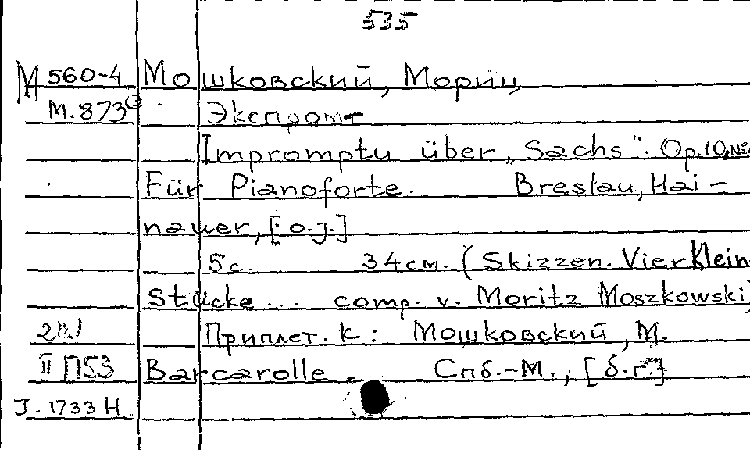 535
М 560-4 Мошковский, Мориц
М.873 Экспромт
Impromptu über „Sachs“. Op.10,№4
Für Pianoforte. Breslau, Hai-
nauer, [o.j.]
5с. 34см. (Skizzen. Vier Klein
Stücke ... comp. v. Moritz Moszkowski)
Приплет. к: Мошковский, М.
II П53 Barcarolle. Спб.-М., [б.г.]
J. 1733 H